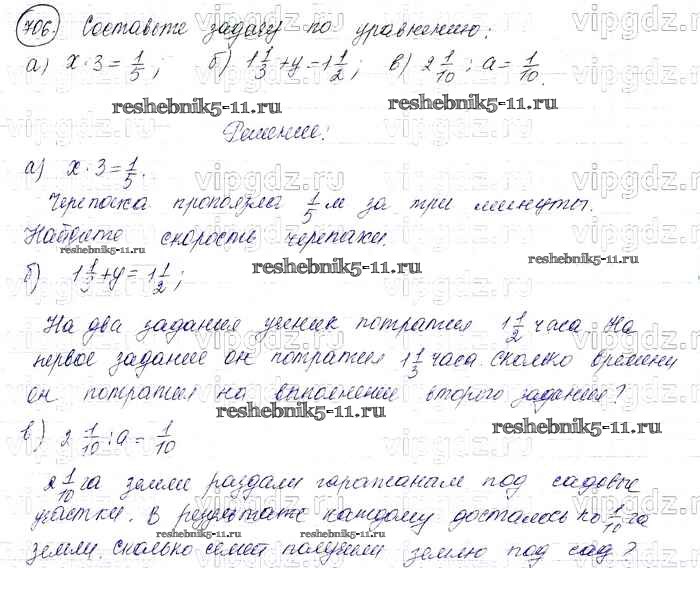 706. Составьте задачу по уравнению:
а) x · 3 = 1/5; б) 1 1/3 + y = 1 1/2; в) 2 1/10 : a = 1/10.
reshebnik5-11.ru reshebnik5-11.ru
Решение:
а) x · 3 = 1/5.
Черепаха проползла 1/5 м за три минуты.
Найдите скорость черепахи.
reshebnik5-11.ru reshebnik5-11.ru
б) 1 1/3 + y = 1 1/2;
На два задания ученик потратил 1 1/2 часа. На
первое задание он потратил 1 1/3 часа. Сколько времени
он потратил на выполнение второго задания?
reshebnik5-11.ru
в) 2 1/10 : a = 1/10
2 1/10 га земли раздали горожанам под садовые
участки. В результате каждому досталось по 1/10 га
reshebnik5-11.ru reshebnik5-11.ru
земли. Сколько семей получили землю под сад?
vipgdz.ru